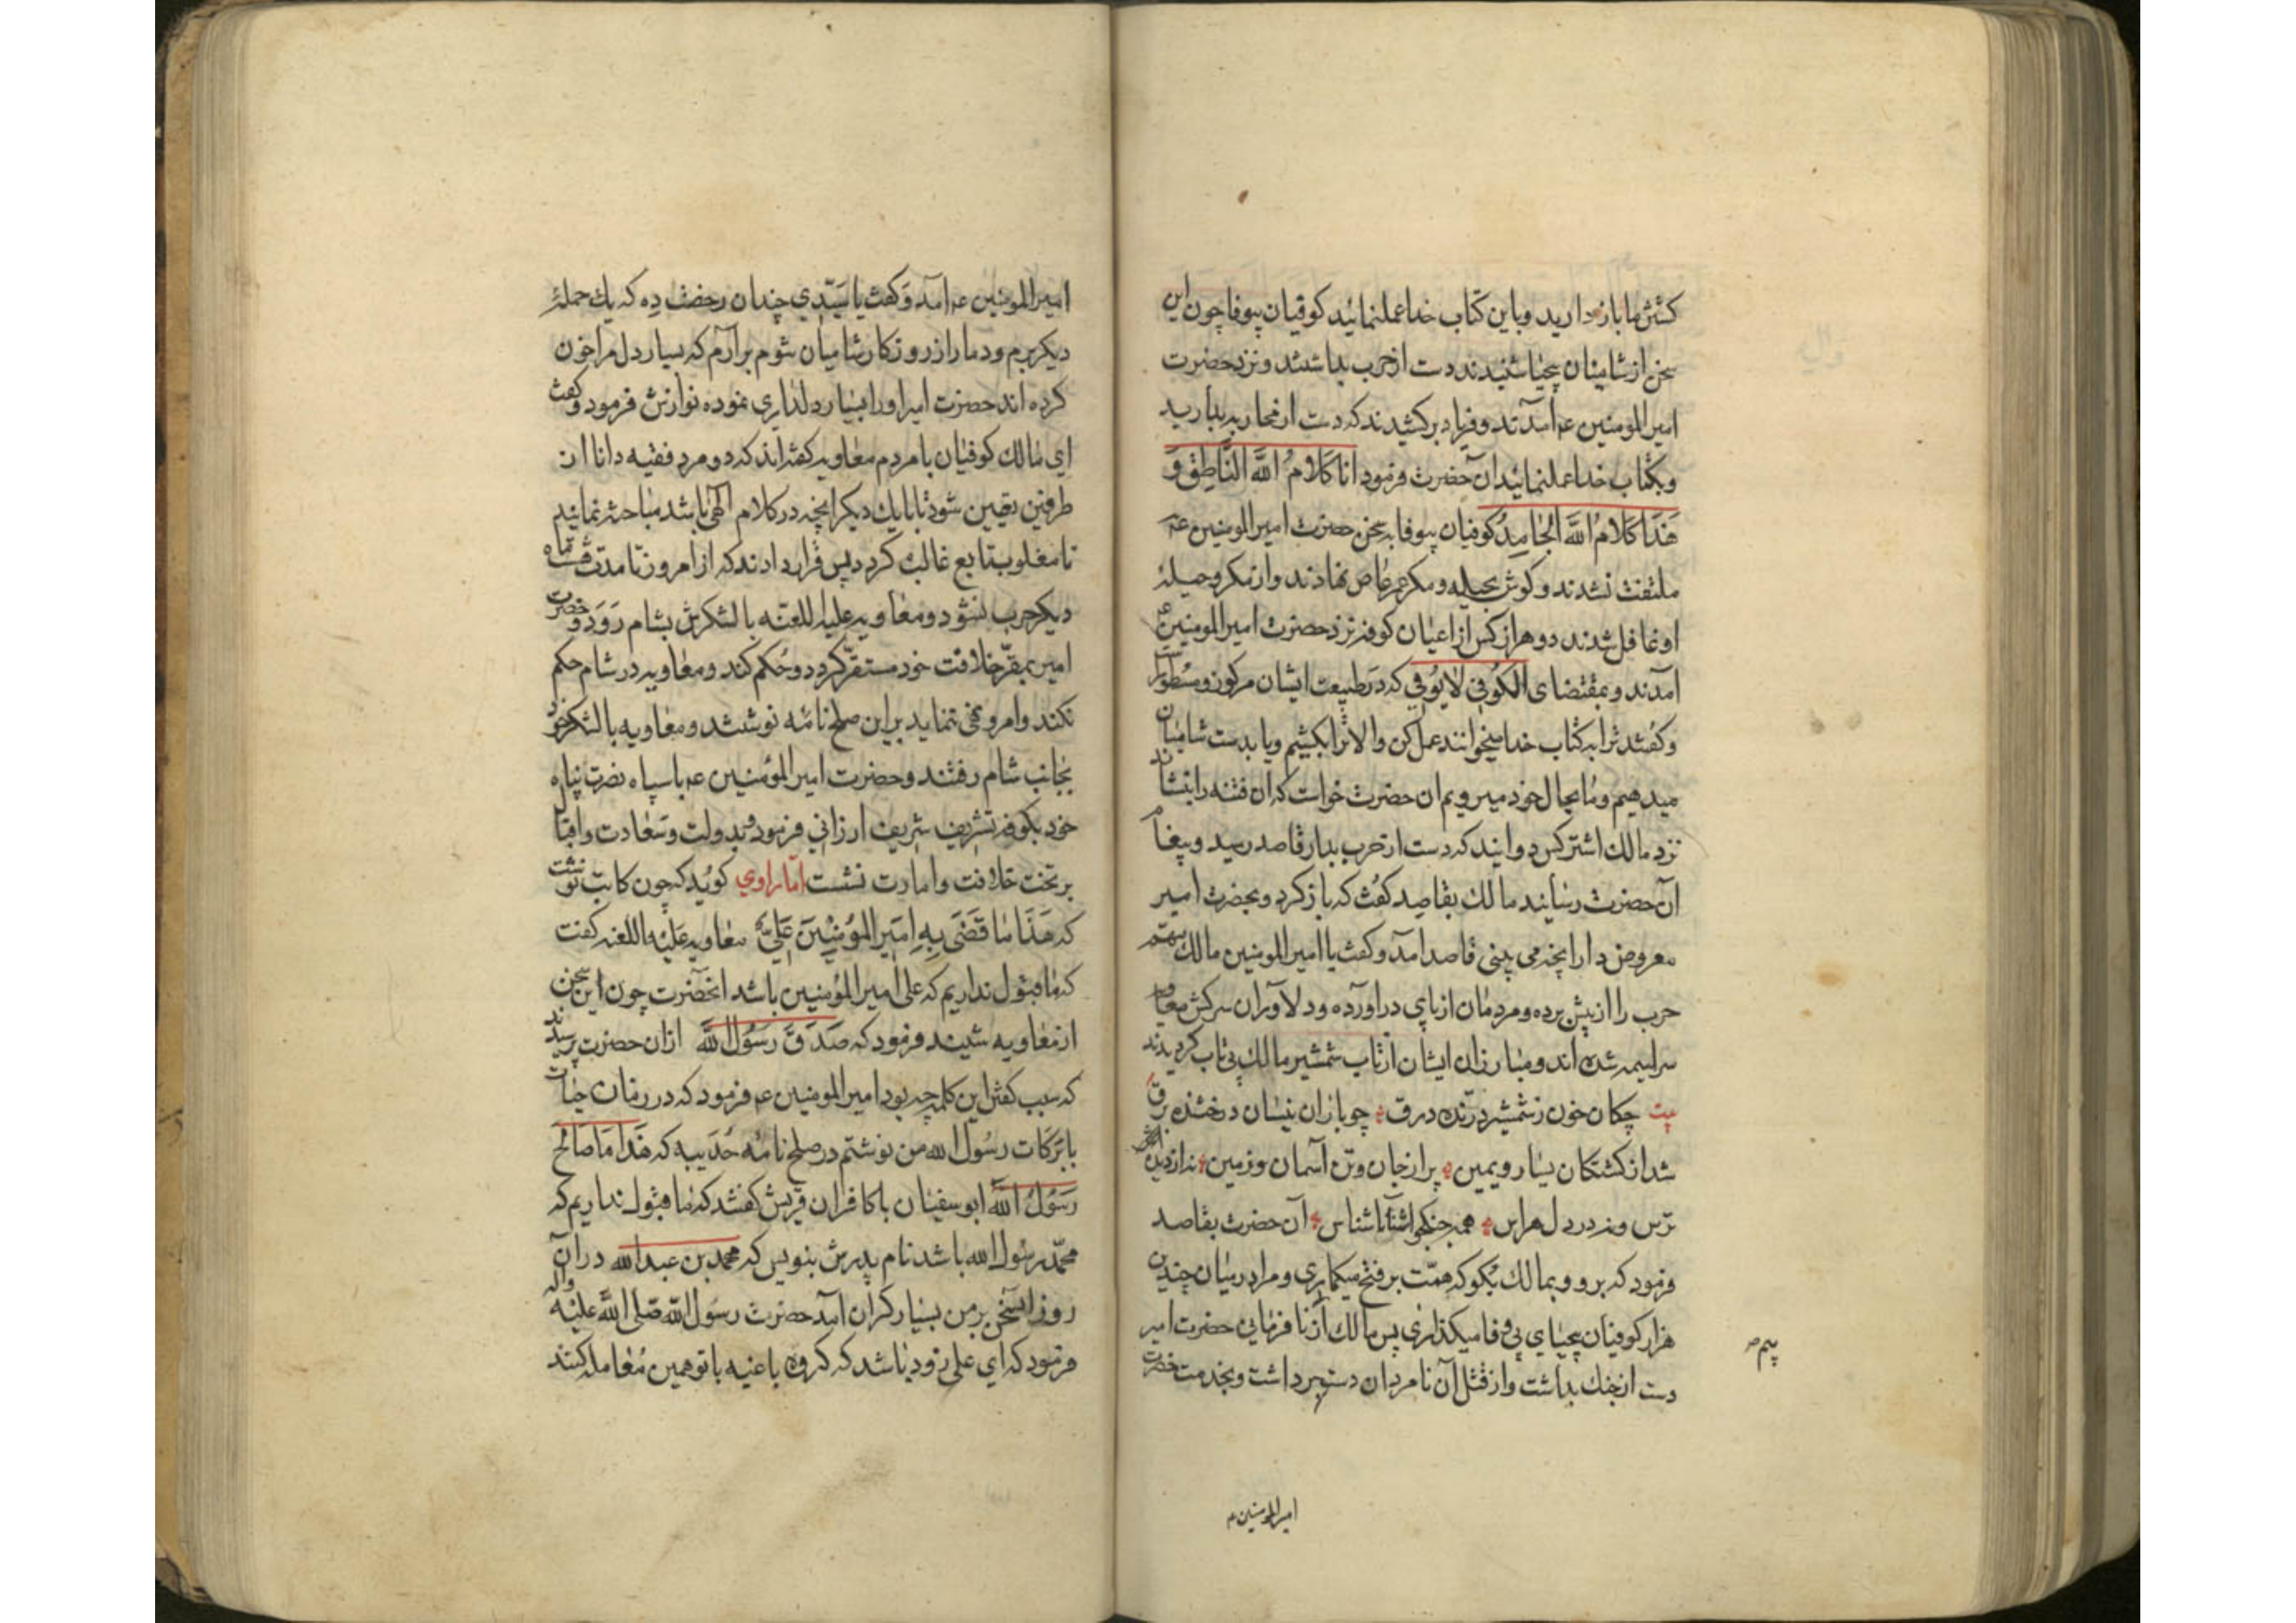 کشتن ما باز دارید وباین کتاب خدا عملنمائید کوفیان بیوفا چون این
سخن از شامیان بیحیا شنیدند دست از حرب بداشتند ونزد حضرت
امیرالمومنین عم آمدند وفریاد برکشیدند که دست از محاربه بدارید
وبکتاب خدا عملنمائید آن حضرت فرمود انا کَلامُ اللَّه النَّاطِق وَ
هَذَا کَلامُ اللَّه الجَامِدُ کوفیان بیوفا به سخن حضرت امیرالمومنین عم
ملتفت نشدند وکوش بحیله ومکر عمرعاص نهادند واز مکر وحیلۀ
او غافل شدند دو هزار کس از اعیان کوفه نزد حضرت امیرالمومنین عم
آمدند وبمقتضای الکُوفِی لایُوفِی که در طبیعت ایشان مرکوز ومسطور است
وکفتند ترا به کتاب خدا میخوانند عمل کن والا ترا بکشیم ویا بدست شامیان
میدهیم وما بحال خود میرویم ان حضرت خواست که ان فتنه را بنشاند
نزد مالک اشتر کس دوانید که دست از حرب بدار قاصد رسید وپیغام
آن حضرت رسانید مالک بقاصد کفت که باز کرد وبحضرت امیر
معروض دار انچه می بینی قاصد امد وکفت یا امیرالمومنین مالک مهم
حرب را از پیش برده ومردمان از پای دراورده ودلاوران سرکش معاویه
سراسیمه شده اند ومبارزان ایشان از تاب شمشیر مالک بی تاب کردیدند
بیت چکان خون ز شمشیر درنده درق چو باران نیسان درخشنده برق
شد از کشتکان یسار ویمین پر از جان وتن آسمان وزمین نه از دیدن
ترس ونه در دل هراس همه جنکجو آشنا ناشناس آن حضرت بقاصد
فرمود که برو وبمالک بکو که همّت بر فتح میکماری ومرا در میان چندین
هزار کوفیان بیحیای بی وفا میکذاری پس مالک از نافرمانی حضرت امیر
دست از جنک بداشت واز قتل آن نامردان دست برداشت وبخدمت حضرت
امیرالمومنین م
امیرالمومنین عم آمد وَکفت یا سَیّدِی چندان رخصت دِه که یک حملۀ
دیکر برم ودمار از روزکار شامیان شوم برآرم که بسیار دل مرا خون
کرده اند حضرت امیر اورا بسیار دلداری نموده نوازش فرمود وکفت
ای مالک کوفیان با مردم معاویه کفته اند که دو مرد فقیه دانا از
طرفین تعیین شود تا با یک دیکر انچه در کلام الهی باشد مباحثه نمائیم
تا مغلوب تابع غالب کردد پس قرار دادند که از امروز تا مدت ششماه
دیکر حرب نشود ومعاویه علیه اللعنه با لشکرش بشام رَوَد وحضرت
امیر بمقرّ خلافت خود مستقرّ کردد وحُکم کند ومعاویه در شام حکم
نکند وامر ونهی ننماید براین صلح نامه نوشتند ومعاویه با لشکر خود
بجانب شام رفتند وحضرت امیرالمؤمنین عم با سپاه نصرت پناه
خود بکوفه تشریف شریف ارزانی فرمود وبدولت وسَعادت واقبال
بر تخت خلافت وامارت نشست امّا راوي کوید که چون کاتب نوشت
که هَذَا مَا قَضَی بِهِ اَمِیر المُؤمِنِینَ عَلِیٌّ معاویه عَلَیْه اللعنه کفت
که ما قبول نداریم که علی امیرالمؤمنین باشد انحضرت چون این سخن
از معاویه شنید فرمود که صَدَقَ رَسُولُ اللَّه ازان حضرت پرسیدند
که سبب کفتن این کلمه چه بود امیرالمومنین عم فرمود که در زمان حیات
بابَرَکات رسُول الله من نوشتم در صلح نامه حُدَیبیه که هَذَا مَا صَالَحَ
رَسُولُ اللَّه ابوسفیان با کافران قریش کفتند که ما قبول نداریم که
محمّد رسُول الله باشد نام پدرش بنویس که محمد بن عبدالله دران
روز این سخن بر من بسیار کران امد حضرت رسول الله صَلَّی اللَّه عَلَیْه واله
فرمود که ای علی زود باشد که کروه باغیه با تو همین مُعامله کنند